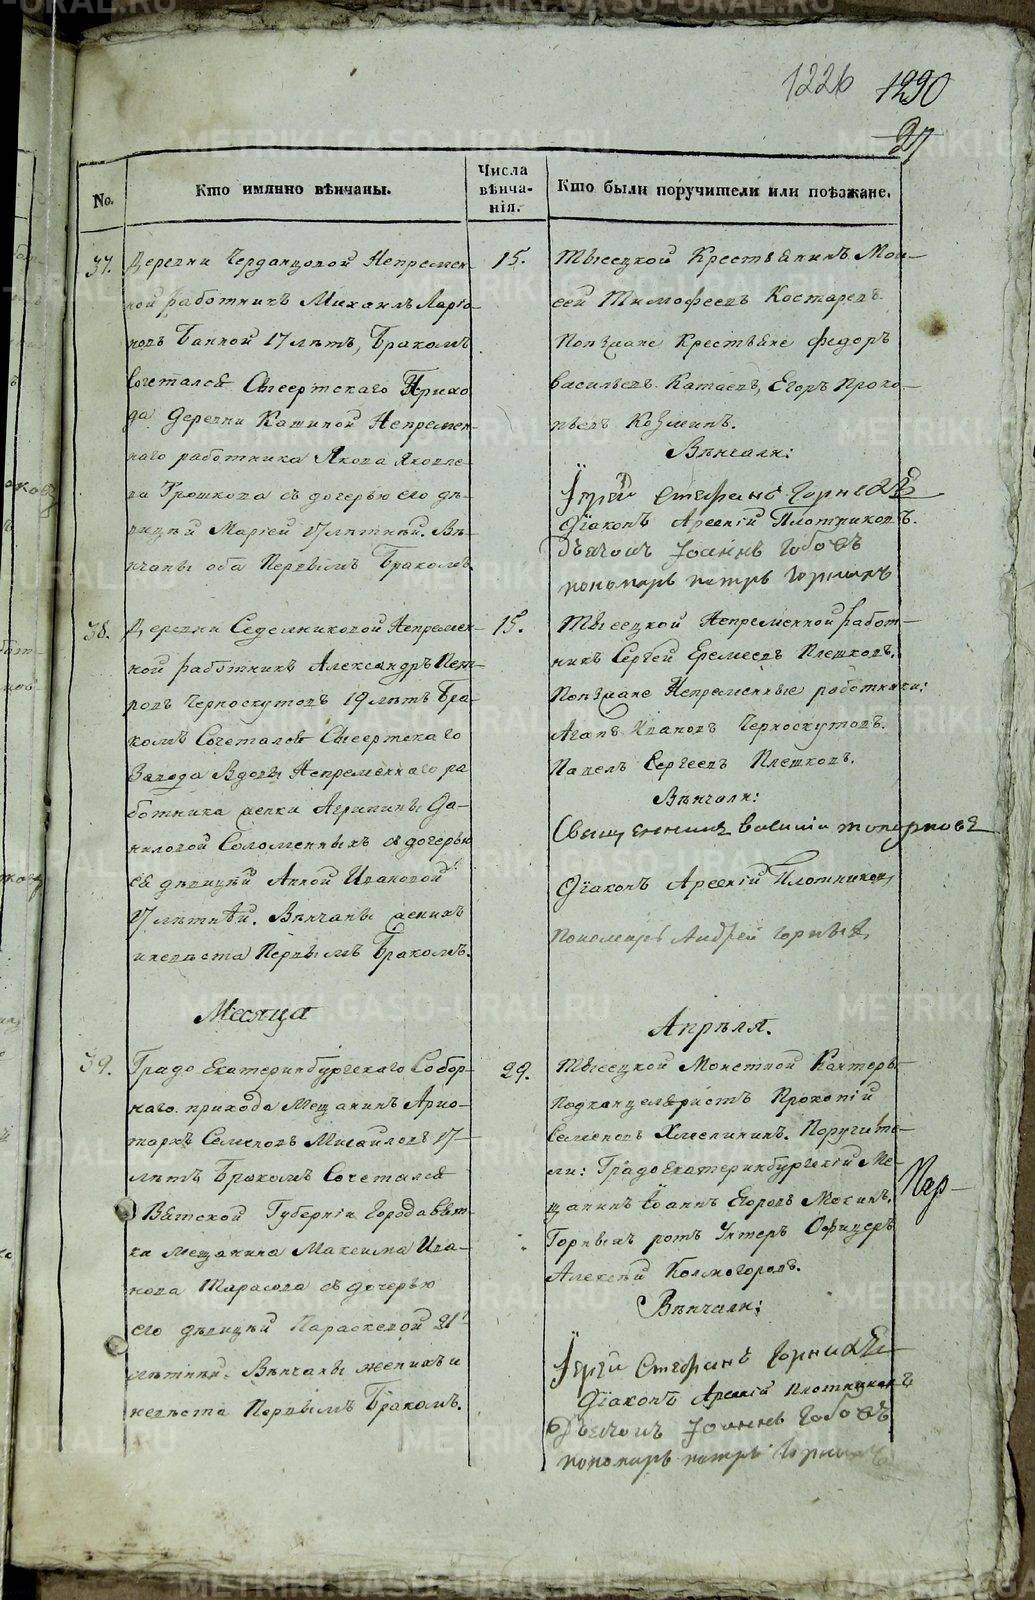 1226 1290
27
No.
Кто имянно вѣнчаны.
Числа вѣнча-
нія.
Кто были поручители или поѣзжане.
37. Деревни Черданцовой Непремен-
ной работникъ Михаилъ Ларіо-
новъ Банной 17 лѣтъ, Бракомъ
Сочетался Сысертскаго Прихо-
да Деревни Кашиной Непремен-
наго работника Якова Яковле-
ва Трошкова съ дочерью его дѣ-
вицѣй Маріей 17 лѣтнѣй. Вѣ-
нчаны оба Первымъ Бракомъ.
15.
Тысецкой Крестьянинъ Мои-
сей Тимофеевъ Костаревъ.
Поѣзжане Крестьяне Федоръ
Васильевъ Катаевъ, Егоръ Проко-
пьевъ Козминъ.
Вѣнчали:
Іерей Стефанъ
Діаконъ Арсеній Плотниковъ.
Дьячокъ Іоаннъ
пономарь петръ
38. Деревни Седелниковой Непремен-
ной работникъ Александръ Пет-
ровъ Черноскутовъ 19 лѣтъ Бра-
комъ Сочетался Сысертскаго
Завода Вдовы Непременнаго ра-
ботника женки Агрипины Да-
ниловой Соломенныхъ съ дочерью
ея дѣвицѣй Анной Ивановой
17 лѣтнѣй. Вѣнчаны женихъ
и невѣста Первымъ Бракомъ.
15.
Тысецкой Непременной работ-
никъ Сергей Еремеевъ Плешковъ.
Поѣзжане Непременные работники:
Агапъ Ивановъ Черноскутовъ.
Павелъ Сергеевъ Плешковъ.
Вѣнчали:
Священникъ василіи топорковъ
Діаконъ Арсеній Плотниковъ,
Пономарь Андрей
Месяца
Апрѣля.
39. Градо Екатеринбургскаго Собор-
наго прихода Мещанинъ Арис-
тархъ Семеновъ Михайловъ 17
лѣтъ Бракомъ Сочетался
Вятской Губерніи Города вят-
ки мещанина Максима Ива-
нова Тарасова съ дочерью
его дѣвицѣй Параскевой 21
лѣтнѣй. Вѣнчаны женихъ и
невѣста Первымъ Бракомъ.
29.
Тысецкой Монетной Канторы
Подканцеляристъ Прокопій
Семеновъ Хмелининъ. Поручите-
ли: Градо Екатеринбургскій Ме-
щанинъ Іоаннъ Егоровъ Мокинъ.
Горныхъ ротъ Унтеръ Офицеръ
Алексѣй Колмогоровъ.
Вѣнчали:
Іерей Стефанъ
Діаконъ Арсеній Плотниковъ
Дьячокъ Іоаннъ
пономарь петръ
Пар-
METRIKI.GASO-URAL.RU